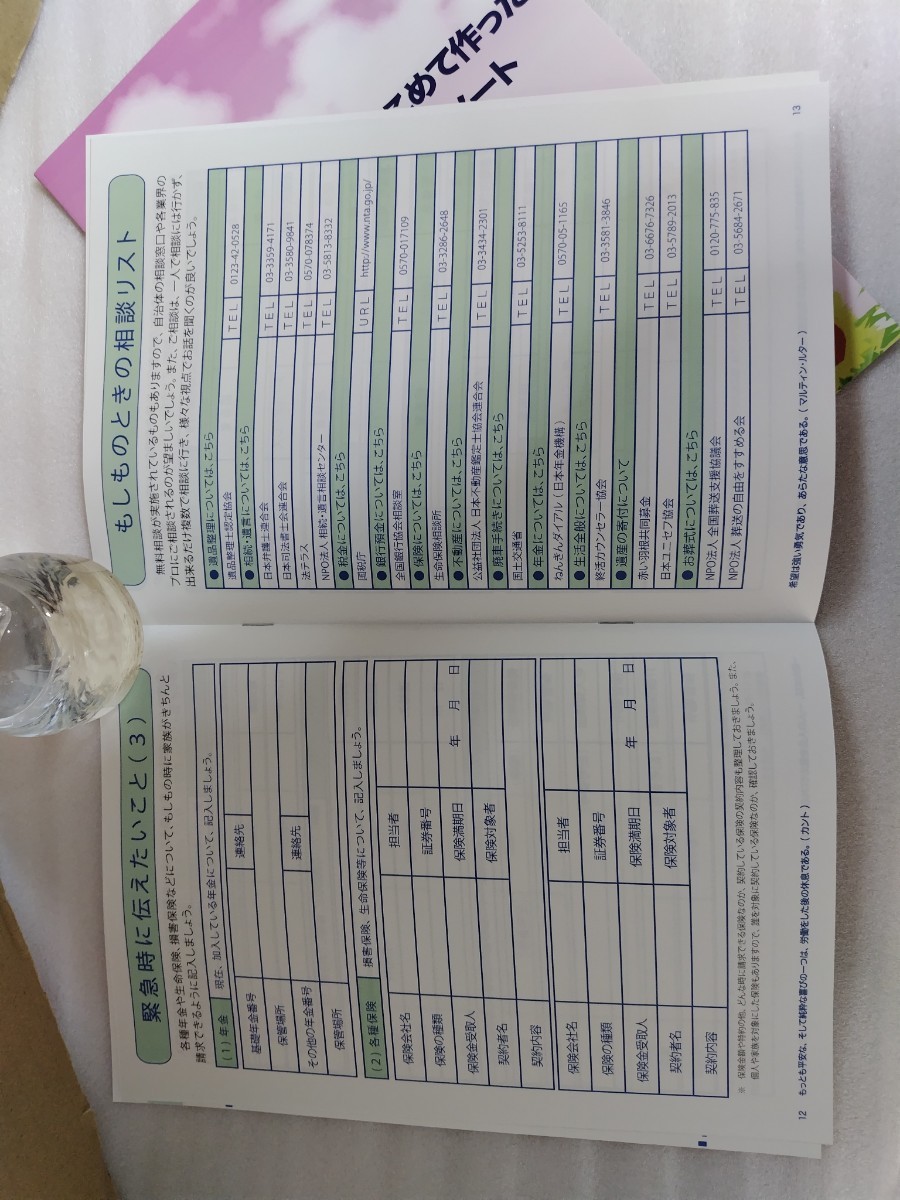 こめて作った
ノート
緊急時に伝えたいこと(3)
各種年金や生命保険、損害保険などについて、もしもの時に家族がきちんと
請求できるように記入しましょう。
(1)年金 現在、加入している年金について、記入しましょう。
基礎年金番号
保管場所 連絡先
その他の年金番号
保管場所 連絡先
(2)各種保険 損害保険、生命保険等について、記入しましょう。
保険会社名 担当者
保険の種類 証券番号
保険金受取人 保険満期日 年 月 日
契約者名 保険対象者
契約内容
保険会社名 担当者
保険の種類 証券番号
保険金受取人 保険満期日 年 月 日
契約者名 保険対象者
契約内容
※ 保険金額や特約の他、どんな時に請求できる保険なのか、契約している保険の契約内容も整理しておきましょう。また、
個人や家族を対象にした保険もありますので、誰を対象に契約している保険なのか、確認しておきましょう。
12 もっとも平安な、そして純粋な喜びの一つは、労働をした後の休息である。(カント)
もしものときの相談リスト
無料相談が実施されているものもありますので、自治体の相談窓口や各業界の
プロにご相談されるのが望ましいでしょう。また、ご相談は、一人で相談には行かず、
出来るだけ複数で相談に行き、様々な視点でお話を聞くのが良いでしょう。
●遺品整理については、こちら
遺品整理士認定協会 TEL 0123-42-0528
●相続・遺言については、こちら
日本弁護士連合会 TEL 03-3359-4171
日本司法書士会連合会 TEL 03-3580-9841
法テラス TEL 0570-078374
NPO法人 相続・遺言相談センター TEL 03-5813-8332
●税金については、こちら
国税庁 URL http://www.nta.go.jp/
●銀行預金については、こちら
全国銀行協会相談室 TEL 0570-017-109
●保険については、こちら
生命保険相談所 TEL 03-3286-2648
●不動産については、こちら
公益社団法人 日本不動産鑑定士協会連合会 TEL 03-3434-2301
●廃車手続きについては、こちら
国土交通省 TEL 03-5253-8111
●年金については、こちら
ねんきんダイアル(日本年金機構) TEL 0570-05-1165
●生活全般については、こちら
終活カウンセラー協会 TEL 03-3581-3846
●遺産の寄付について
赤い羽根共同募金 TEL 03-6676-7326
日本ユニセフ協会 TEL 03-5789-2013
●お葬式については、こちら
NPO法人 全国葬送支援協議会 TEL 0120-775-835
NPO法人 葬送の自由をすすめる会 TEL 03-5684-2671
希望は強い勇気であり、あらたな意思である。(マルティン・ルター) 13